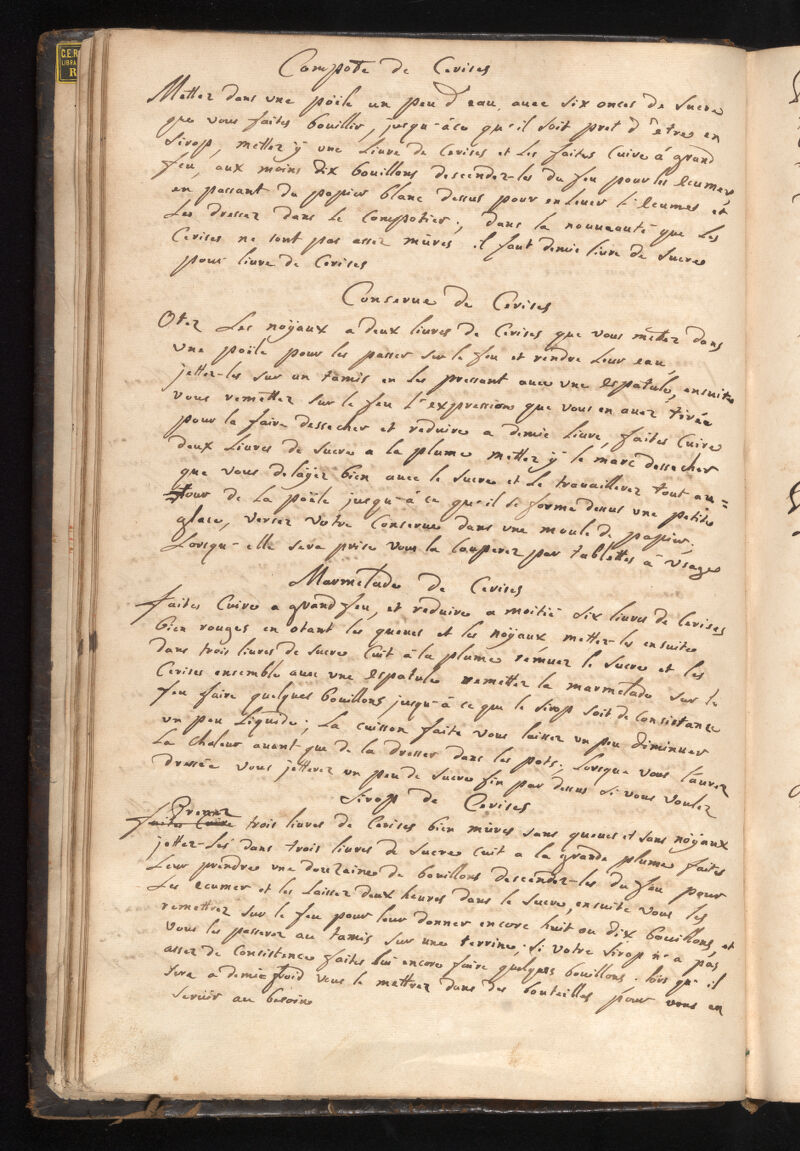 C.E.R
LIBRA
R
Compote de Cerises
Mettez dans vne pöéle un peu d'eau auec six onces de sucre
que vous faites bouillir, jusqu-àce qu-il soit pret d'être en
sirop, mettez ÿ une Liure de Cerises et les faites Cuire à grand
feu, aux moins dix bouillons descendez-les du feu pour les Ecumer,
en passant du papier blanc dessus pour enleuer l'Ecumes et
Les dressez dans le Compotier; dans la nouueauté que Les
Cerises ne sont pas assez mûres il faut demie liure de sucre
pour liure de Cerises
Conserue de Cerises
Otez Les noÿaux a deux liures de Cerises que vous mettez dans
vne poéle pour les passer sur le feu et rendre Leur eau,
jettez-les sur un tamis en les pressant auec vne Espatule, ensuite
vous remettez sur le feu L'expression que vous en auez tirée
pour la faire dessecher et reduire a demie liure, faites Cuire
deux Liures de sucre a la plume mettez ÿ le marc dessecher
que vous delaÿez bien auec le sucre et le trauaillerez tout au=
tour de La poële jusqu-à ce qu-il se forme dessus vne petite
glace, versez votre Conserue dans vne moule de papier,
Lorsqu-elle sera prise vous la Couperez par tablettes à Vsage
Marmelade de Cerises
faites Cuire a grand feu, et reduire a moitié six liures de Cerises
bien rouges en otant les queues et les noÿaux mettez-les ensuite
dans trois liures de sucre Cuit à la plume rémuez le sucre et les
Cerises ensemble auec vne Espatule remettez la marmelade sur le
feu faire quelques bouillons jusqu-à ce que le sirop soit de Consistance
vn peu Liquide; La cuisson faite vous laissez vn peu diminuer
La Chaleur auant que de la dresser dans les pots; Lorsque vous l'aurez
dressée vous jetterez vn peu de sucre fin par dessus si vous voulez
Sirop de Cerises
Prenez
faites Cuire trois liures de Cerises bien mûres sans queues et sans noÿaux
jettez-Les dans trois liures de sucre Cuit a la grande plume faites
Leur prendre vne douzaine de bouillons descendez-les du feu pour
Les Ecumer et les laissez deux heures dans le sucre, ensuite vous les
remettrez sur le feu pour leur donner encore huit ou dix bouillons, et
vous les passerez au tamis sur une terrine; si votre sirop n'a pas
assez de Consistence faites lui encore faire quelques bouillons. lors qu'il
sera a demie froid vous le mettrez dans des bouteilles pour vous en
seruir au besoin